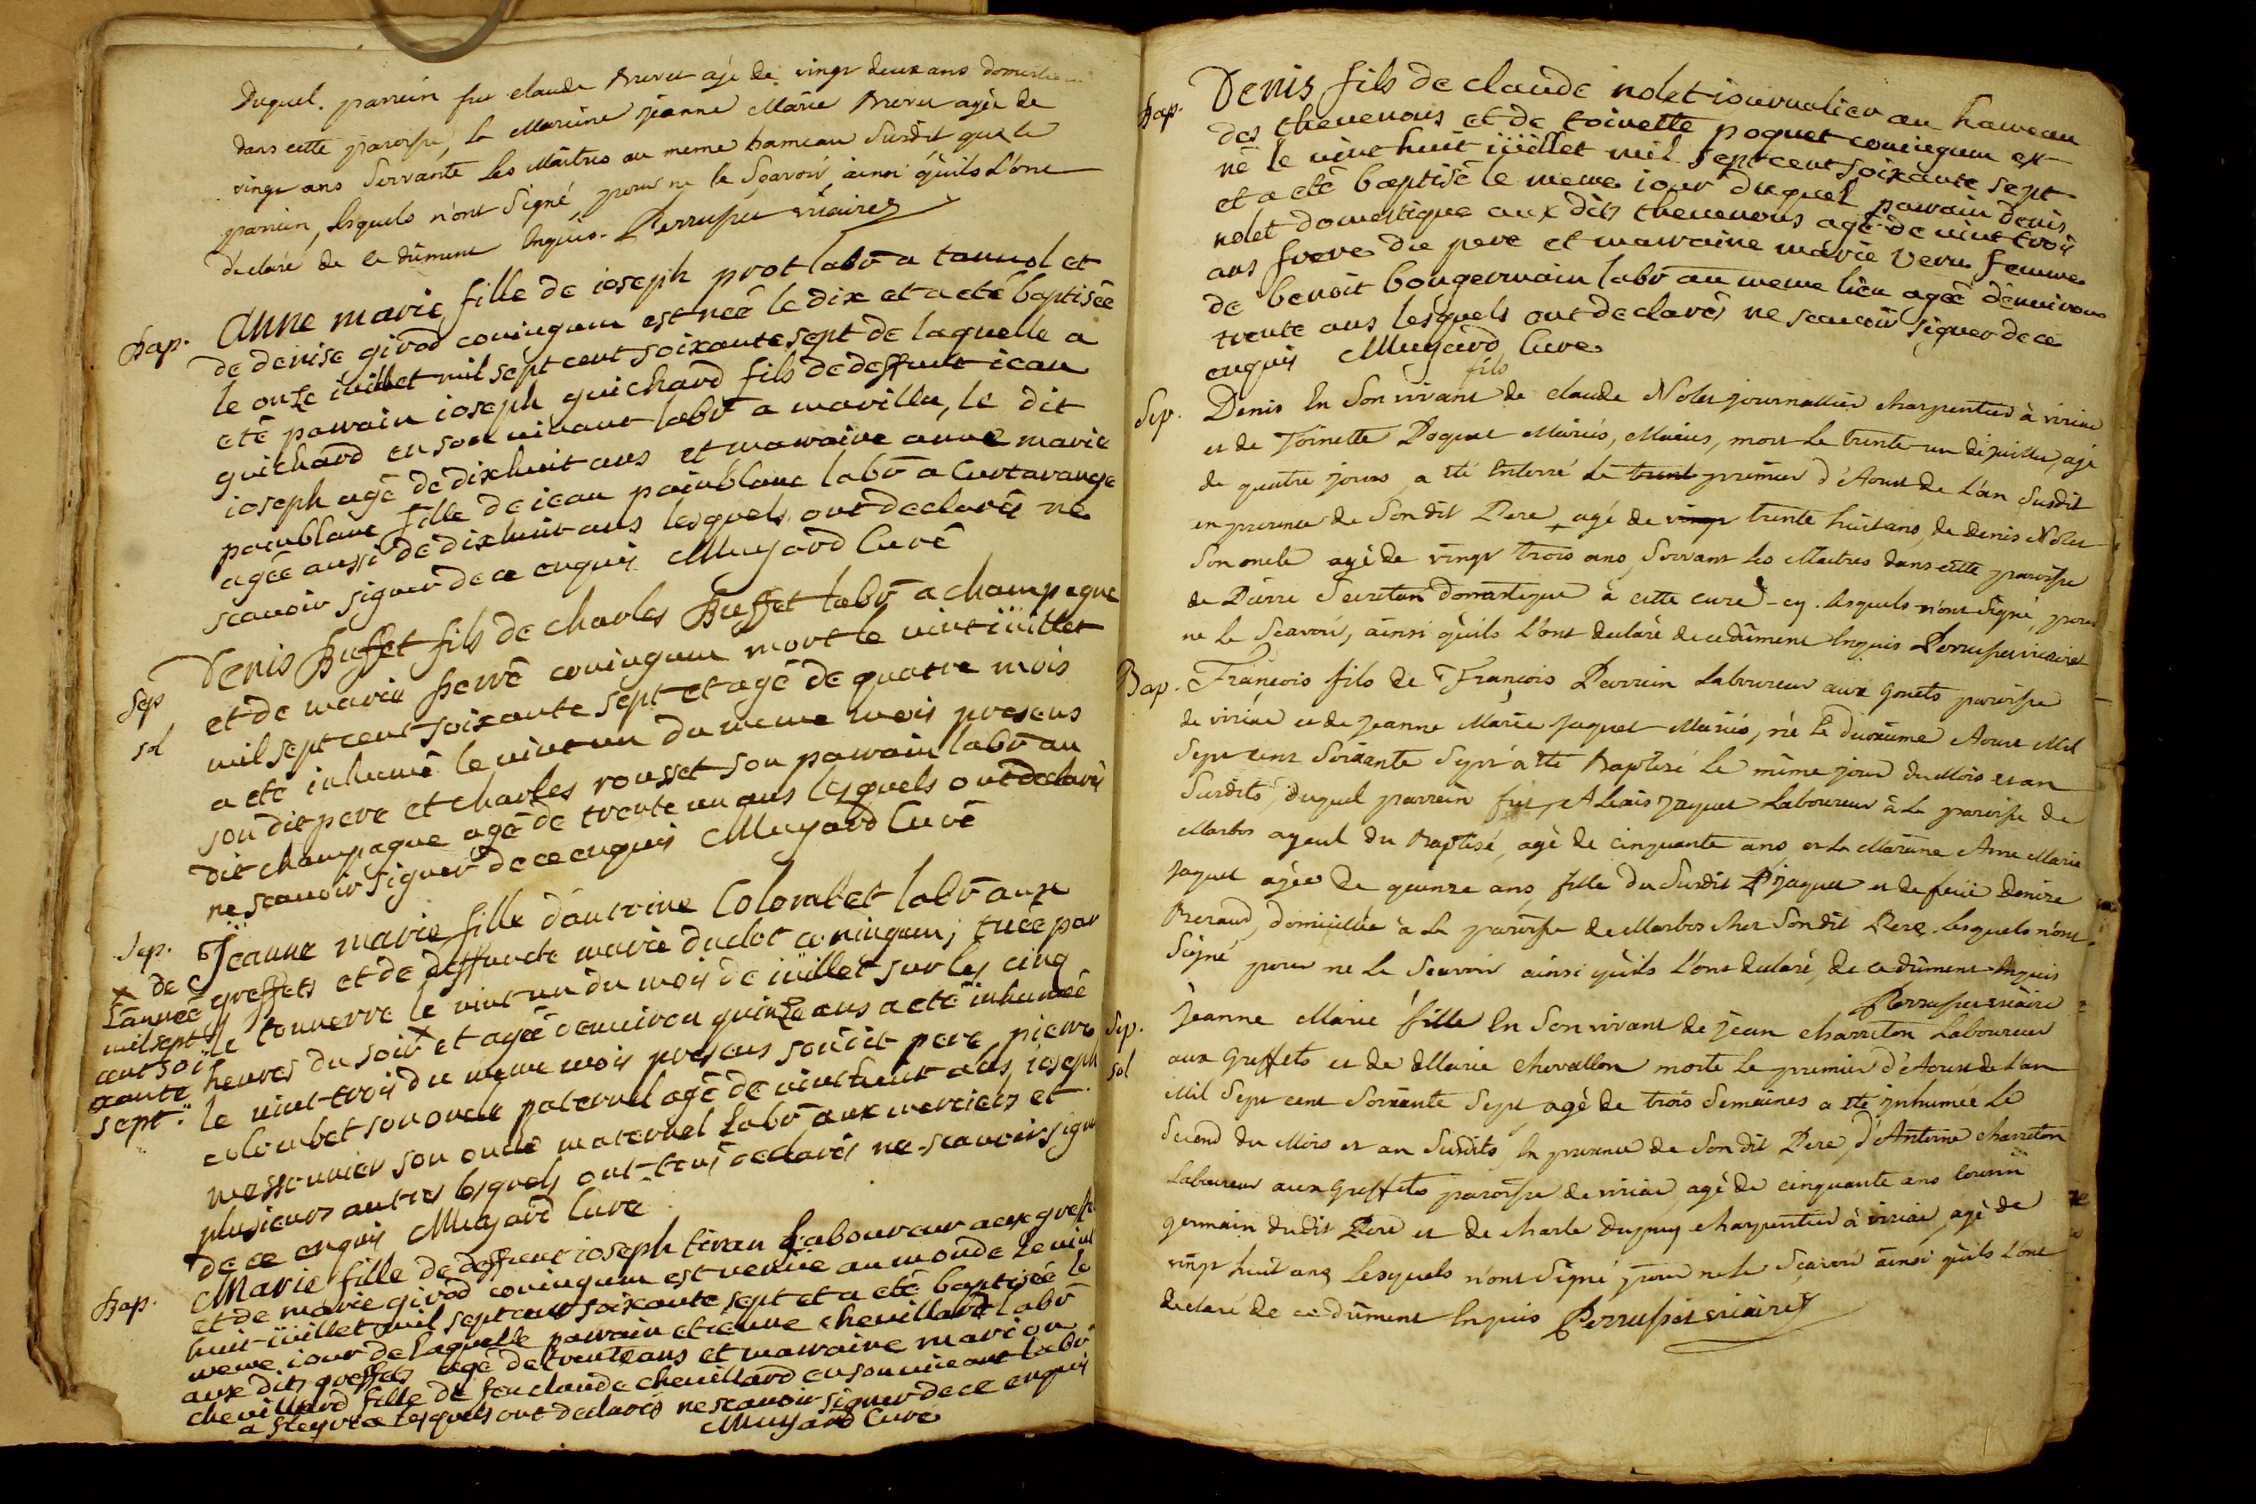 Duquel. parrein fut claude Brevet agé de vingt deux ans domestique
dans cette paroisse, la Mareine jeanne Marie Brevet agée de
vingt ans Servante Les Maitres au meme hameau Susdit que le
parrein, lesquels n'ont Signé, pour ne le Scavoir, ainsi qu'ils L'ont
declaré de ce dûment Enquis. Perruset vicaire
Bap. Anne marie fille de ioseph prot labr a tannol et
de denise girod coniugum est neé le dix et a eté baptiseé
le onze iuillet mil sept cent soixante sept de laquelle a
eté parrain ioseph guichard fils de deffunt iean
guichard en son vivant labr a marillia, le dit
ioseph agé de dix huit ans et marraine anne marie
painblanc fille de iean painblanc labr a Curtarange
ageé aussi de dix huit ans lesquels ont declarés ne
scavoir signer de ce enquis Muyard Curé
Sep Denis Buffet fils de charles Buffet labr a champagne
et de marie herré coniugum mort le vint iüillet
sol mil sept cent soixante sept et agé de quatre mois
a eté inhumé le vint un du meme mois presens
son dit pere et charles rousset son parrain labr au
dit champagne agé de trente un ans lesquels ont declarés
ne scavoir signer de ce enquis Muyard Curé
Sep. Jeanne marie fille d'antoine Colombet labr aux
greffets et de deffuncte marie duclot coniugum; tueé par
le tonnerre le vint un du mois de iüillet sur les cinq
heures du soir × et ageé d'environ quinze ans a eté inhumeé
× de L'anneé mil sept cent soixante sept
le vint-trois du meme mois presens son dit pere, pierre
colombet son oncle paternel agé de vint huit ans, ioseph
messonnier son oncle maternel Labr aux merciers et
plusieurs autres lesquels ont tous declarés ne scavoir signer
de ce enquis Muyard Curé
Bap. Marie fille de deffunt ioseph tiran Laboureur aux greffets
et de marie girod coniugum est venüe au monde le vint
huit iüillet mil sept cent soixante sept et a eté baptiseé le
meme iour de laquelle parrain etienne chevillard labr
aux dits greffets agé de trente ans et marraine marion
chevillard fille de feu claude chevillard en son vivant labr
a fleyriat lesquels ont declarés ne scavoir signer de ce enquis
Muyard Curé
Bap. Denis fils de claude nolet iournalier au hameau
des thevenons et de toinette poquet coniugum est
né le vint huit iüillet mil sept cent soixante sept
et a eté baptisé le meme iour duquel parrain denis
nolet domestique aux dits thevenons agé de vint trois
ans frere du pere et marraine marie veru femme
de benoit bongermain labr au meme lieu ageé d'environ
trente ans lesquels ont declarés ne scavoir signer de ce
enquis Muyard Curé
Sep. Denis En Son vivant fils de claude Nolet journallier charpentier à viriat
et de Toinette Poquet Mariés, mort Le trente-un de juillet, agé
de quatre jours, a été Enterré Le trent premier d'Aoust de L'an Susdit
en presence de Son dit Pere agé de vingt trente huit ans, de Denis Nolet
Son oncle agé de vingt trois ans, Servant Les Maitres dans cette paroisse
de Pierre Secretan Domestique à cette cure-cy. Lesquels n'ont Signé, pour
ne Le Scavoir, ainsi qu'ils L'ont declaré de ce dûment Enquis Perruset vicaire
Bap. François fils de François Perrin Laboureur aux gonets paroisse
de viriat et de jeanne Marie Jaquet Mariés, né le deuxieme Aoust Mil
Sept cent Soixante Sept a été Baptisé Le même jour du Mois et an
Susdits, duquel parrein fut Aliais Jaquet Laboureur à La paroisse de
Marbos ayeul du Baptisé, agé de cinquante ans et La Mareine Anne Marie
Jaquet agée de quinze ans, fille du Susdit Jaquet et de feüe Denise
Beraud, domiciliée à La paroisse de Marbos chez Sondit Pere. Lesquels n'ont
Signé pour ne Le Scavoir ainsi qu'ils L'ont declaré, de ce dûment Enquis
Perruset vicaire
Sep. Jeanne Marie fille En Son vivant de jean charreton Laboureur
sol aux Greffets et de Marie chevallon morte Le premier d'Aoust de L'an
Mil Sept cent Soixante Sept agé de trois Semaines a été inhumée Le
Second du Mois et an Susdits, En presence de Son dit Pere, d'Antoine charreton
Laboureur aux Greffets paroisse de viriat, agé de cinquante ans cousin
germain dudit Pere et de charle Dupuy charpentier à viriat, agé de
vingt huit ans Lesquels n'ont Signé pour ne le Scavoir ainsi qu'ils L'ont
declaré de ce dûment Enquis Perruset vicaire